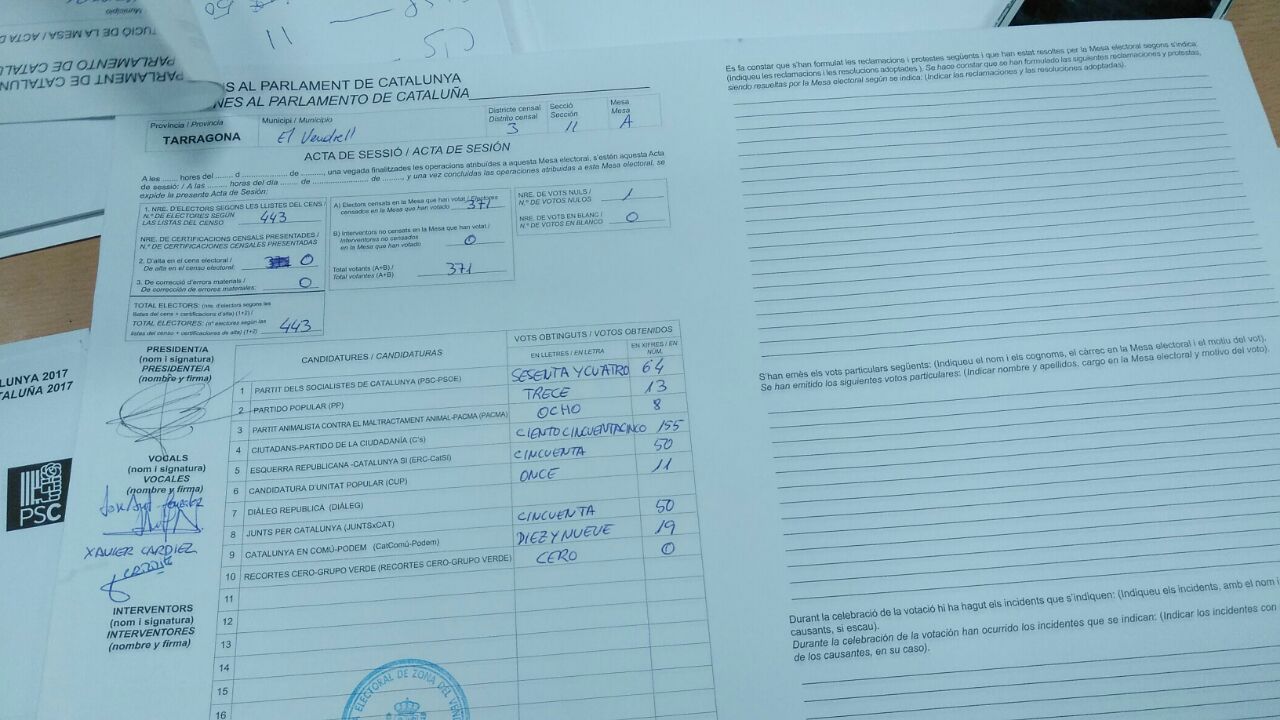 S AL PARLAMENT DE CATALUNYA
NES AL PARLAMENTO DE CATALUÑA
Província / Provincia
TARRAGONA
Municipi / Municipio
El Vendrell
Districte censal
Distrito censal
3
Secció
Sección
11
Mesa
Mesa
A
ACTA DE SESSIÓ / ACTA DE SESIÓN
A les ........ hores del ........ d ........ de ........, una vegada finalitzades les operacions atribuïdes a aquesta Mesa electoral, s'estén aquesta Acta
de sessió: / A las ........ hores del día ........ de ........ de ........ y una vez concluidas las operaciones atribuidas a este Mesa electoral, se
expide la presente Acta de Sesión:
1. NRE. D'ELECTORS SEGONS LES LLISTES DEL CENS /
N.º DE ELECTORES SEGÚN
LAS LISTAS DEL CENSO
443
NRE. DE CERTIFICACIONS CENSALS PRESENTADES /
N.º DE CERTIFICACIONES CENSALES PRESENTADAS
2. D'alta en el cens electoral /
De alta en el censo electoral:
0
3. De correcció d'errors materials /
De corrección de errores materiales:
0
TOTAL ELECTORS: (nre. d'electors segons les
llistes del cens + certificacions d'alta) (1+2) /
TOTAL ELECTORES: (nº electores según las
listas del censo + certificaciones de alta) (1+2)
443
A) Electors censats en la Mesa que han votat / Electores
censados en la Mesa que han votado
371
B) Interventors no censats en la Mesa que han votat /
Interventores no censados
en la Mesa que han votado
0
Total votants (A+B) /
Total votantes (A+B)
371
NRE. DE VOTS NULS /
N.º DE VOTOS NULOS
1
NRE. DE VOTS EN BLANC /
N.º DE VOTOS EN BLANCO
0
PRESIDENT/A
(nom i signatura)
PRESIDENTE/A
(nombre y firma)
VOCALS
(nom i signatura)
VOCALES
(nombre y firma)
XAVIER CARDIEZ
INTERVENTORS
(nom i signatura)
INTERVENTORES
(nombre y firma)
CANDIDATURES / CANDIDATURAS
VOTS OBTINGUTS / VOTOS OBTENIDOS
EN LLETRES / EN LETRA
EN XIFRES / EN NÚM.
1 PARTIT DELS SOCIALISTES DE CATALUNYA (PSC-PSOE) SESENTA Y CUATRO 64
2 PARTIDO POPULAR (PP) TRECE 13
3 PARTIT ANIMALISTA CONTRA EL MALTRACTAMENT ANIMAL-PACMA (PACMA) OCHO 8
4 CIUTADANS-PARTIDO DE LA CIUDADANÍA (C's) CIENTO CINCUENTACINCO 155
5 ESQUERRA REPUBLICANA -CATALUNYA SI (ERC-CatSI) CINCUENTA 50
6 CANDIDATURA D'UNITAT POPULAR (CUP) ONCE 11
7 DIÀLEG REPUBLICA (DIÀLEG)
8 JUNTS PER CATALUNYA (JUNTSxCAT) CINCUENTA 50
9 CATALUNYA EN COMÚ-PODEM (CatComú-Podem) DIEZ Y NUEVE 19
10 RECORTES CERO-GRUPO VERDE (RECORTES CERO-GRUPO VERDE) CERO 0
11
12
13
14
15
16
ELECTORAL DE ZONA DEL VEN
Es fa constar que s'han formulat les reclamacions i protestes següents i que han estat resoltes per la Mesa electoral segons s'indica:
(Indiqueu les reclamacions i les resolucions adoptades ). Se hace constar que se han formulado las siguientes reclamaciones y protestas,
siendo resueltas por la Mesa electoral según se indica: (Indicar las reclamaciones y las resoluciones adoptadas).
S'han emès els vots particulars següents: (Indiqueu el nom i els cognoms, el càrrec en la Mesa electoral i el motiu del vot).
Se han emitido los siguientes votos particulares: (Indicar nombre y apellidos, cargo en la Mesa electoral y motivo del voto).
Durant la celebració de la votació hi ha hagut els incidents que s'indiquen: (Indiqueu els incidents, amb el nom i
causants, si escau).
Durante la celebración de la votación han ocurrido los incidentes que se indican: (Indicar los incidentes con
de los causantes, en su caso).
LUNYA 2017
ALUÑA 2017
PSC
PARLAMENT DE CATALUN
PARLAMENTO DE CATAL
TUCIÓ DE LA MESA / ACTA DE
11